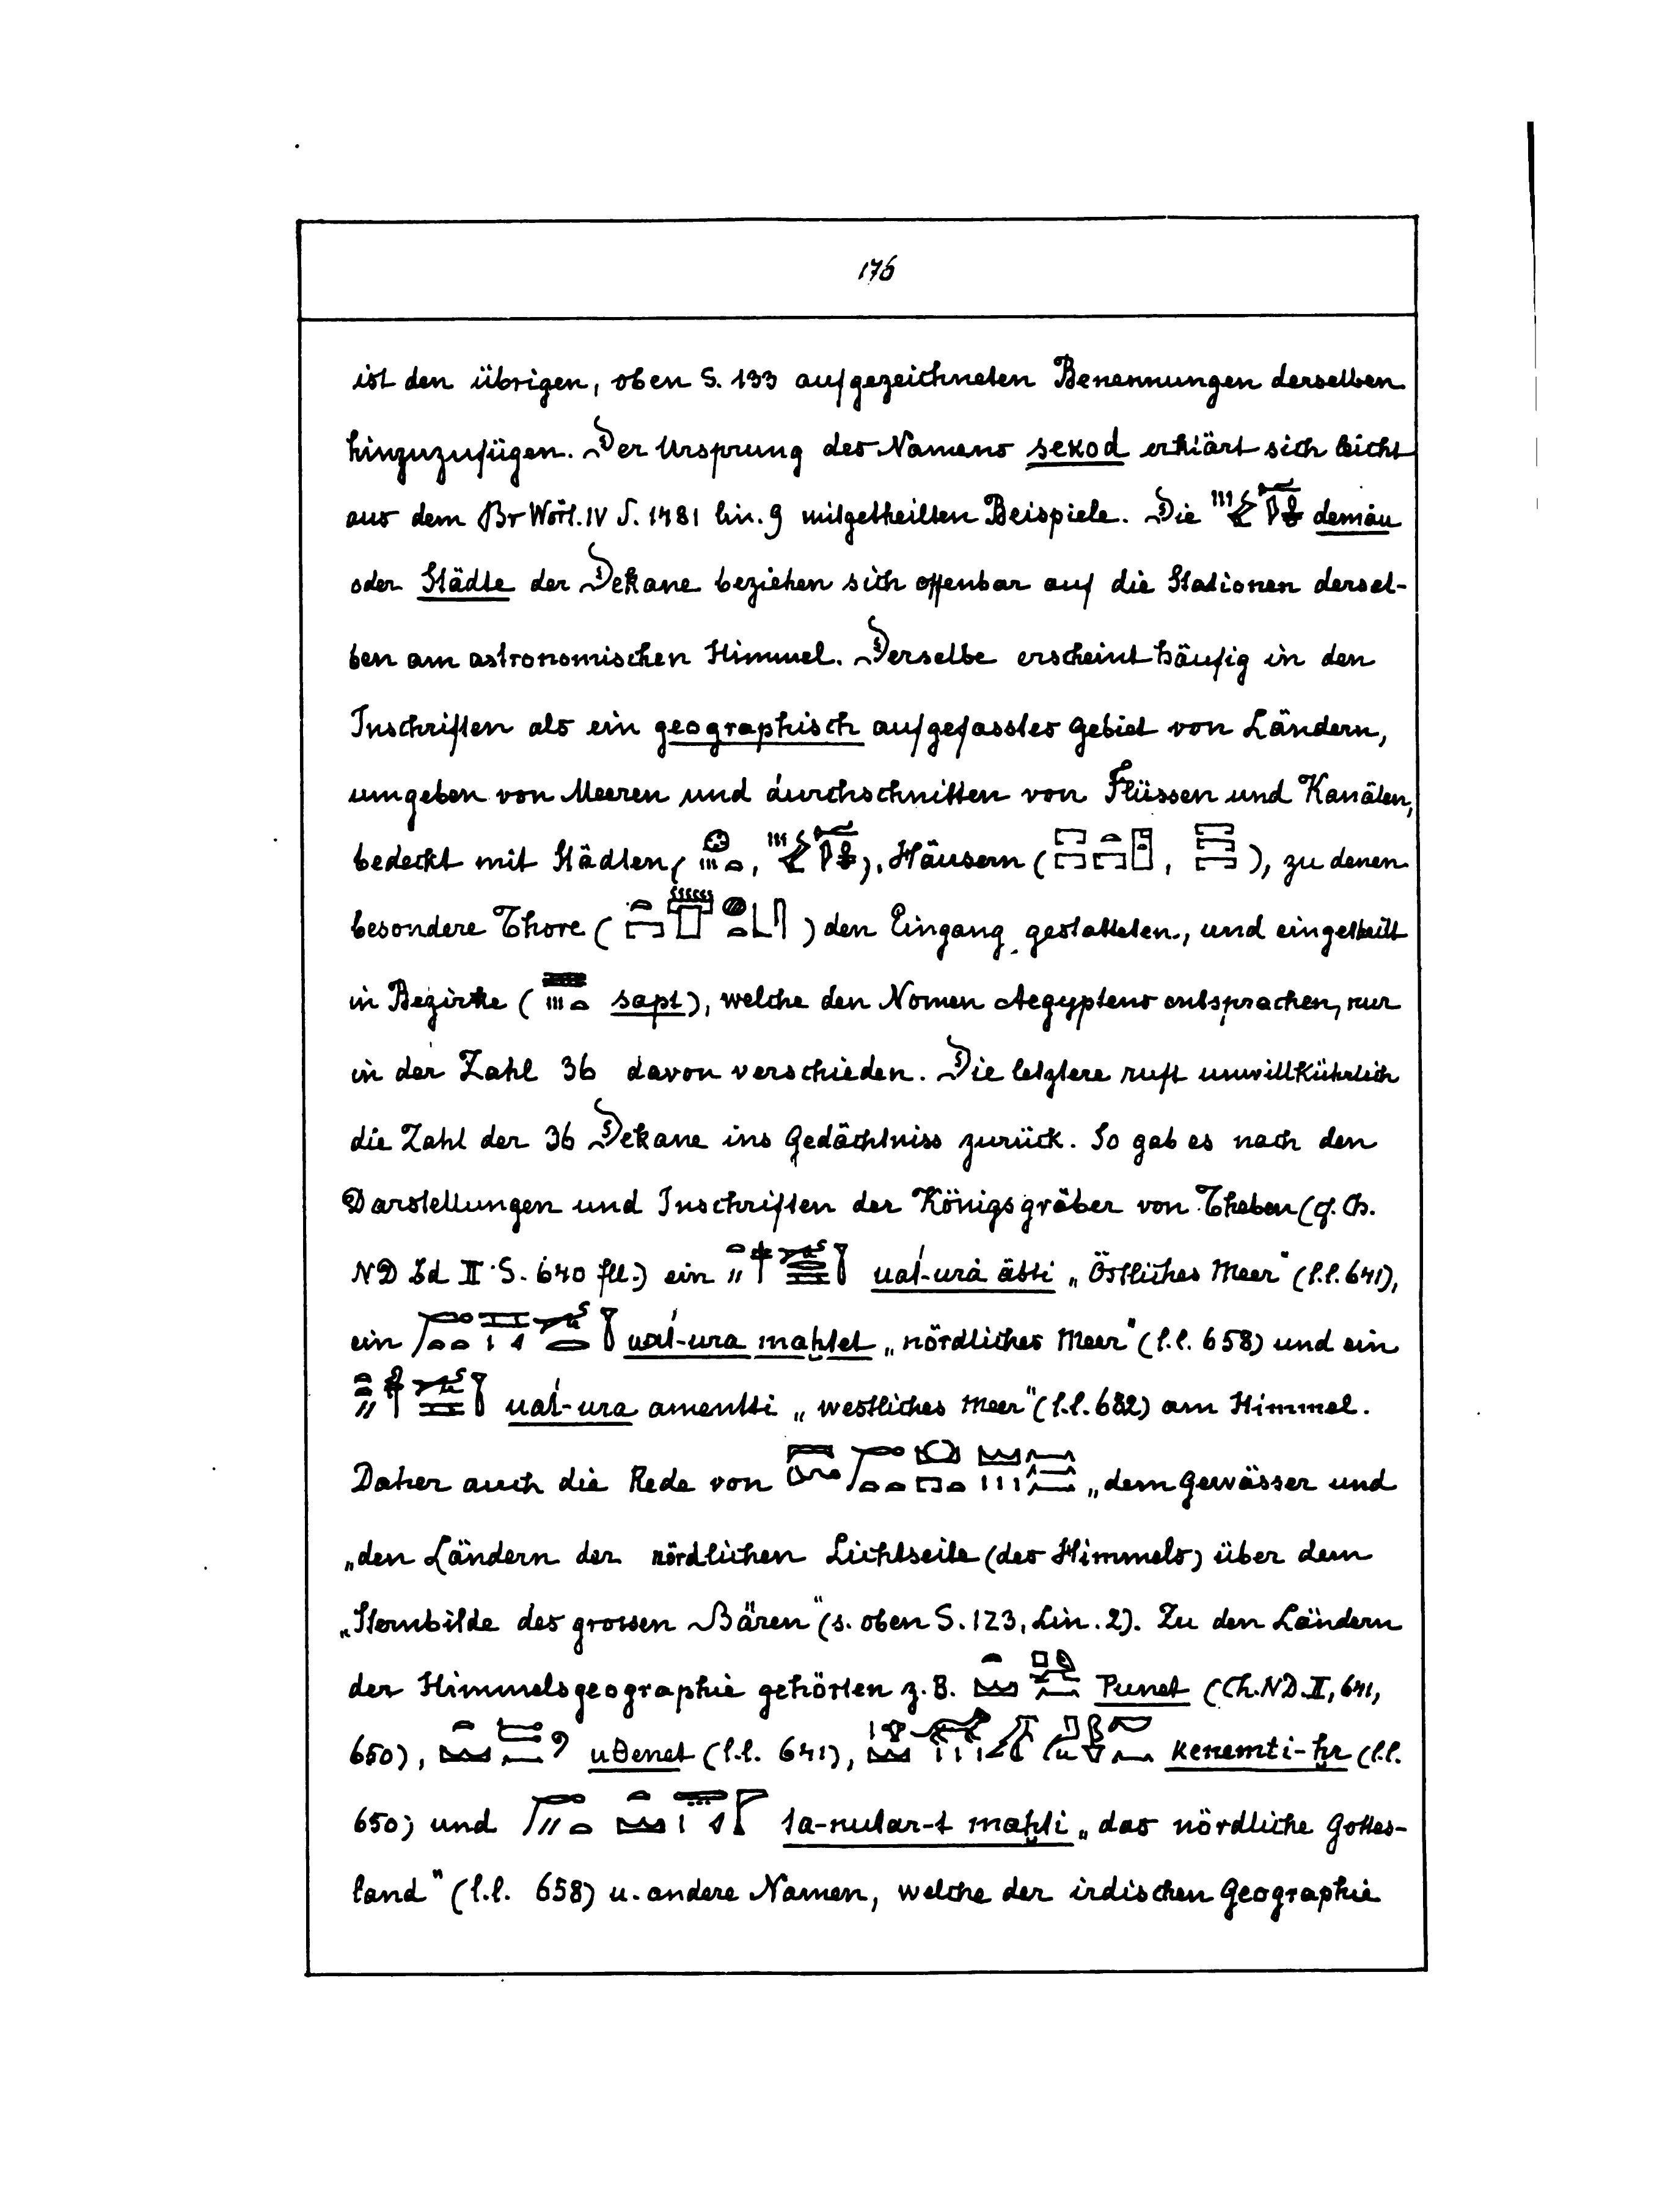 176
ist den übrigen, oben S. 133 aufgezeichneten Benennungen derselben
hinzuzufügen. Der Ursprung des Namens sexod erklärt sich leicht
aus dem Br Wört. IV S. 1481 lin. 9 mitgetheilten Beispiele. Die demåu
oder Städte der Dekane beziehen sich offenbar auf die Stationen dersel-
ben am astronomischen Himmel. Derselbe erscheint häufig in den
Inschriften als ein geographisch aufgefasstes Gebiet von Ländern,
umgeben von Meeren und durchschnitten von Flüssen und Kanälen,
bedeckt mit Städten ( , ), Häusern ( , ), zu denen
besondere Thore ( ) den Eingang gestatteten, und eingetheilt
in Bezirke ( sapt), welche den Nomen Aegyptens entsprachen, nur
in der Zahl 36 davon verschieden. Die letztere ruft unwillkührlich
die Zahl der 36 Dekane ins Gedächtniss zurück. So gab es nach den
Darstellungen und Inschriften der Königsgräber von Theben (cf. Ch.
ND Bd II S. 640 fll.) ein uat́-urȧ äbti „Östliches Meer" (l.l. 641),
ein uat́-ura maḥtet „nördliches Meer" (l.l. 658) und ein
uat́-ura amentti „westliches Meer" (l.l. 682) am Himmel.
Daher auch die Rede von „dem Gewässer und
„den Ländern der nördlichen Lichtseite (des Himmels) über dem
„Sternbilde des grossen Bären" (s. oben S. 123, Lin. 2). Zu den Ländern
der Himmelsgeographie gehörten z. B. Punet (Ch. ND. II, 641,
650), uθenet (l.l. 641), kenemti-ḥr (l.l.
650) und ta-nutar-t maḥti „das nördliche Gottes-
land" (l.l. 658) u. andere Namen, welche der irdischen Geographie